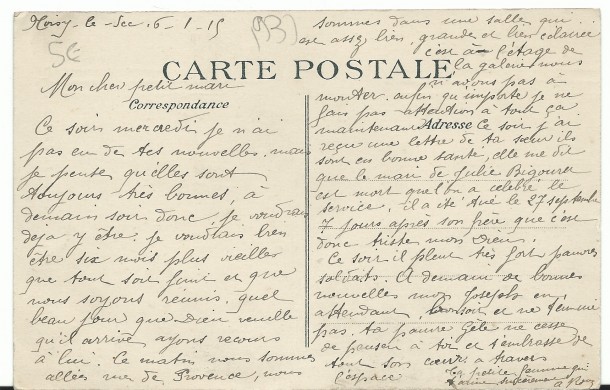 Noisy-le-Sec 6-1-15
5€
CARTE POSTALE
Correspondance
Adresse
Mon cher petit mari
Ce soir mercredi je n'ai
pas eu de tes nouvelles, mais
je pense qu'elles sont
toujours très bonnes, à
demain soir donc, je voudrais
déjà y être. je voudrais bien
être six mois plus vieilles
que tout soit finit et que
nous soyons réunis, quel
beau jour que Dieu veuille
qu'il arrive, ayons recours
à lui. Ce matin nous sommes
allées rue de Provence, nous
sommes dans une salle qui
est assez bien, grande et bien éclairée
c'est à l'étage de
la galerie nous
n'avons pas à
monter, enfin qu'importe je ne
fais pas attention à tout ça
maintenant. Ce soir j'ai
reçu une lettre de ta sœur ils
sont en bonne santé, elle me dit
que le mari de Julie Bigouret
est mort quel'on a célébré le
service, il a été tué le 27 septembre
7 jours après son frère que c'est
donc triste mon Dieu.
Ce soir il pleut très fort pauvres
soldats. A demain de bonnes
nouvelles mon Joseph, en
attendant, bonsoir et ne t'ennuie
pas. ta pauvre Gète ne cesse
de penser à toi et t'embrasse de
tout son cœur à travers
l'espace
Ta petite femme qui
t'aime